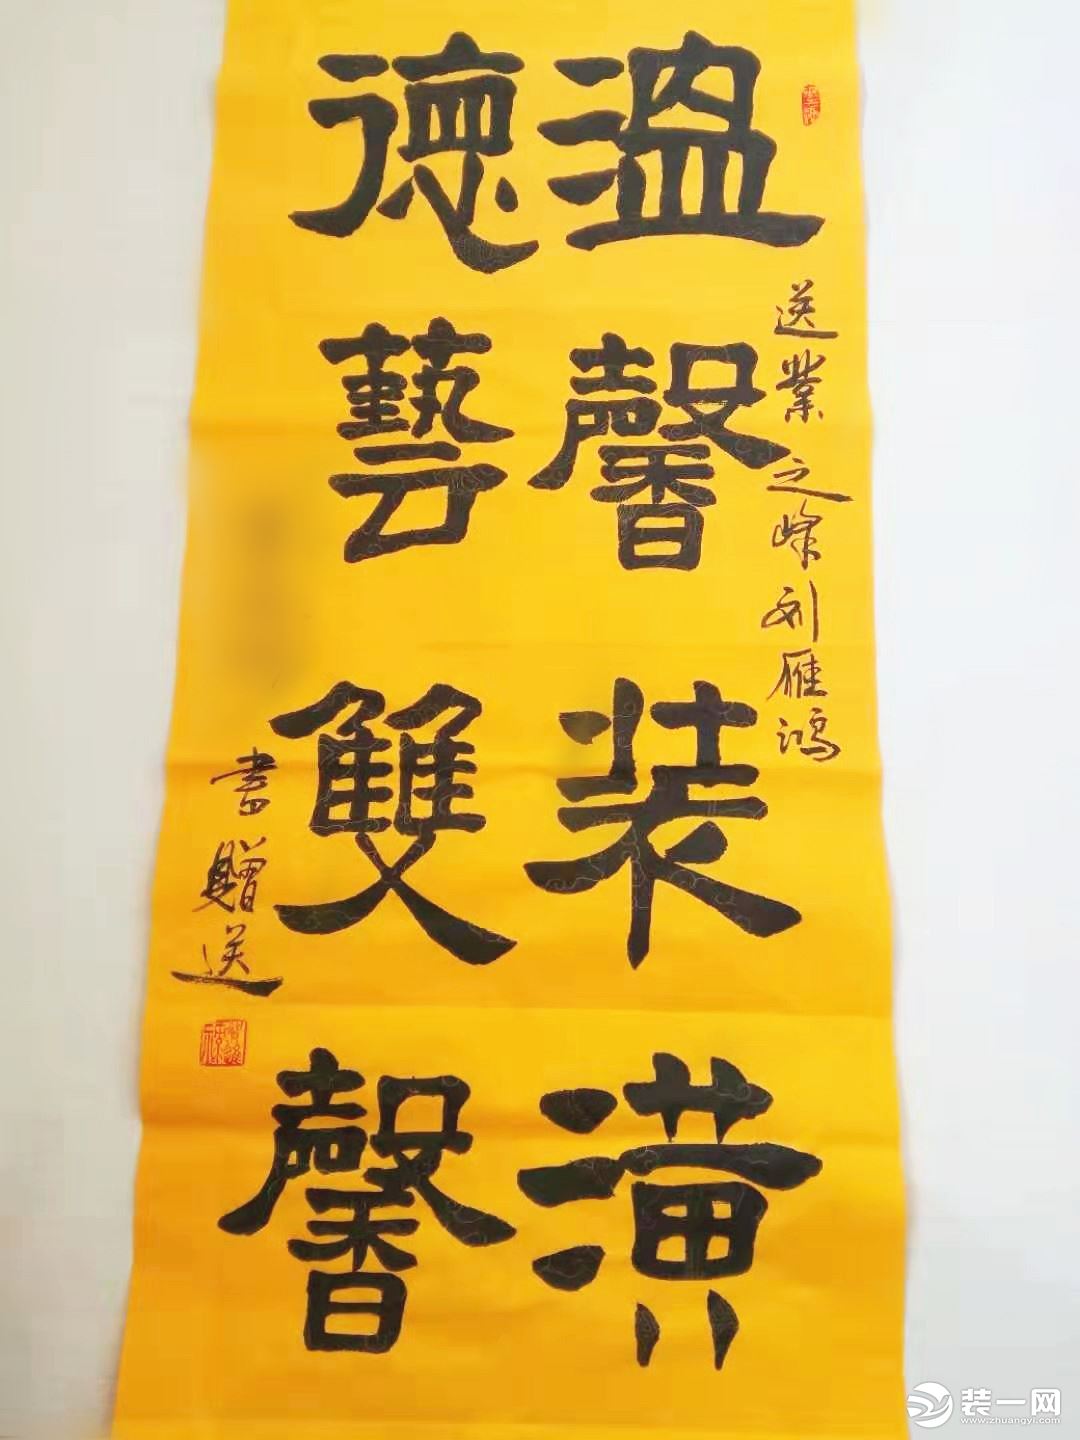 送業之峰刘雁鴻
温馨装潢
德藝雙馨
書贈送
装一网
www.zhuangyi.com